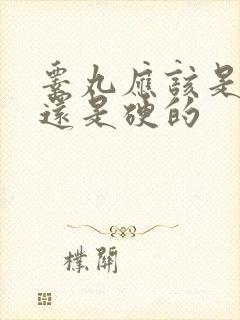 睾丸應該是
還是硬的
樸開